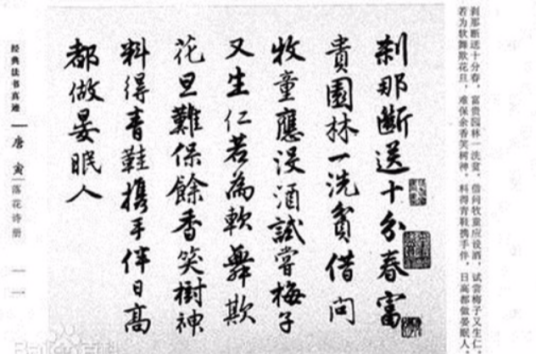 刹那断送十分春，富贵园林一洗贫，借问牧童应没酒，试尝梅子又生仁，
若为软舞欺花旦，难保余香笑树神，料得青鞋携手伴，日高都做晏眠人
刹那断送十分春富
貴園林一洗貧借问
牧童應没酒試嘗梅子
又生仁若為軟舞欺
花旦難保餘香笑樹神
料得青鞋携手伴日高
都做晏眠人
经典法书真迹
唐寅
落花诗册
一一